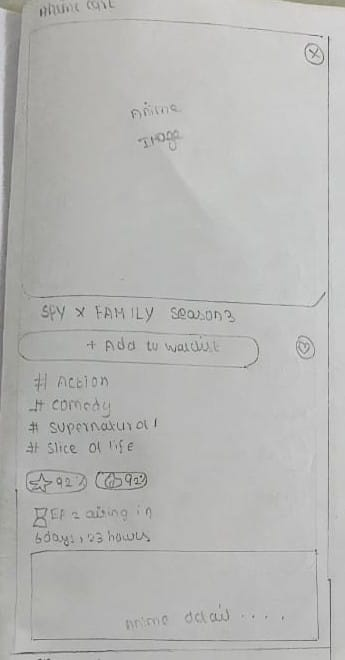 Anime
Image
SPY X FAMILY Season 3
+ Add to watchlist
# Action
# comedy
# supernatural
# slice of life
92% 92%
EP 2 airing in
6days, 23 hours
Anime detail ....